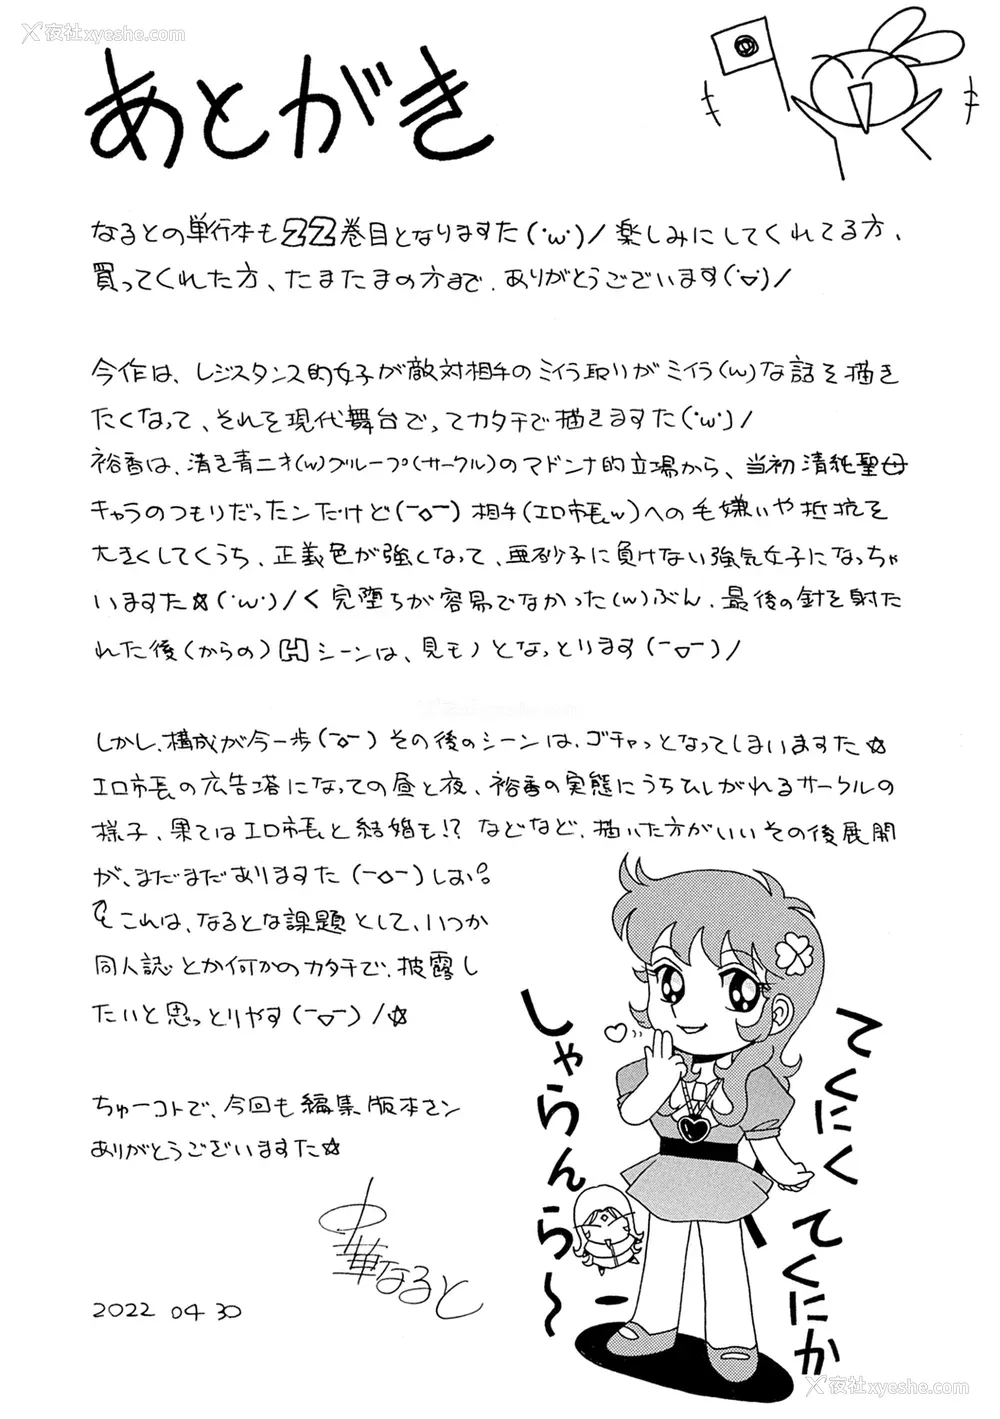 X夜社xyeshe.com
あとがき
なるとの単行本も22巻目となりますた(·ω·)/ 楽しみにしてくれてる方、
買ってくれた方、たまたまの方まで、ありがとうございます(·▽·)/
今作は、レジスタンス的女子が敵対相手のミイラ取りがミイラ(w)な話を描き
たくなって、それを現代舞台でってカタチで描きますた(·ω·)/
裕香は、清き青二才(w)グループ(サークル)のマドンナ的立場から、当初清純聖母
キャラのつもりだったンだけど(ー◇ー)相手(エロ市長w)への毛嫌いや抵抗を
大きくしてくうち、正義色が強くなって、亜砂子に負けない強気女子になっちゃ
いますた☆(·ω·)/く完堕ちが容易でなかった(w)ぶん、最後の針を射た
れた後(からの)Hシーンは、見モノとなっとります(ー▽ー)/
しかし、構成が今一歩(ー◇ー)その後のシーンは、ゴチャっとなってしまいますた☆
エロ市長の広告塔になっての昼と夜、裕香の実態にうちひしがれるサークルの
様子、果てはエロ市長と結婚も!?などなど、描いた方がいいその後展開
が、まだまだありますた(ー◇ー)しお。
これは、なるとな課題として、いつか
同人誌とか何かのカタチで、披露し
たいと思っとりやす(ー▽ー)/☆
ちゅーコトで、今回も編集版本サン
ありがとうございますた☆
中華なると
2022 04 30
てくにく てくにか
しゃらんら〜
X夜社xyeshe.com